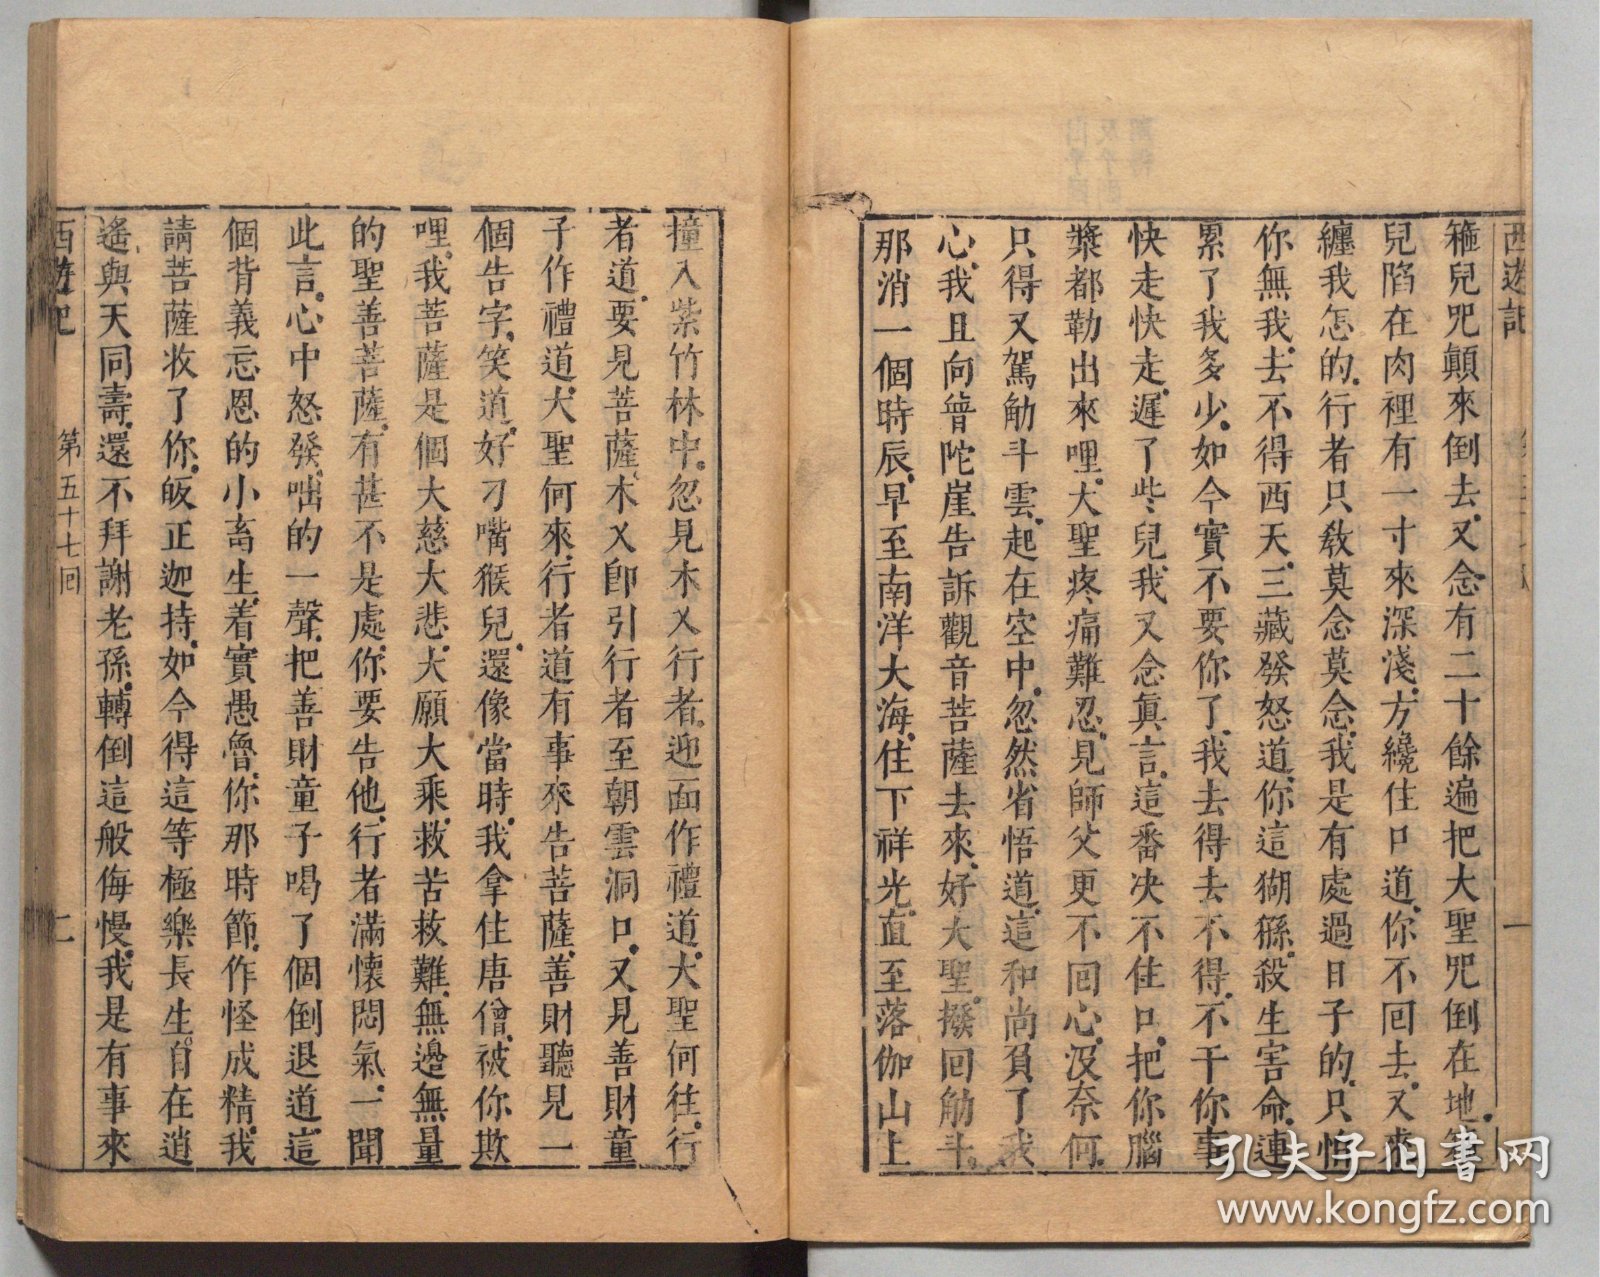 西遊記
一
箍兒咒顛來倒去又念有二十餘遍把大聖咒倒在地箍
兒陷在肉裡有一寸來深淺方纔住口道你不回去又來
纏我怎的行者只教莫念莫念我是有處過日子的只怕
你無我去不得西天三藏發怒道你這猢猻殺生害命連
累了我多少如今實不要你了我去得去不得不干你事
快走快走遲了些兒我又念眞言這番决不住口把你腦
漿都勒出來哩大聖疼痛難忍見師父更不回心沒奈何
只得又駕觔斗雲起在空中忽然省悟道這和尚負了我
心我且向普陀崖告訴觀音菩薩去來好大聖撥回觔斗
那消一個時辰早至南洋大海住下祥光直至落伽山上
撞入紫竹林中忽見木乂行者迎面作禮道大聖何往行
者道要見菩薩木乂卽引行者至朝雲洞口又見善財童
子作禮道大聖何來行者道有事來告菩薩善財聽見一
個告字笑道好刁嘴猴兒還像當時我拿住唐僧被你欺
哩我菩薩是個大慈大悲大願大乘救苦救難無邊無量
的聖善菩薩有甚不是處你要告他行者滿懷悶氣一聞
此言心中怒發咄的一聲把善財童子喝了個倒退道這
個背義忘恩的小畜生着實愚魯你那時節作怪成精我
請菩薩收了你皈正迦持如今得這等極樂長生自在逍
遙與天同壽還不拜謝老孫轉倒這般侮慢我是有事來
西遊記
第五十七回
二
孔夫子旧書网
www.kongfz.com